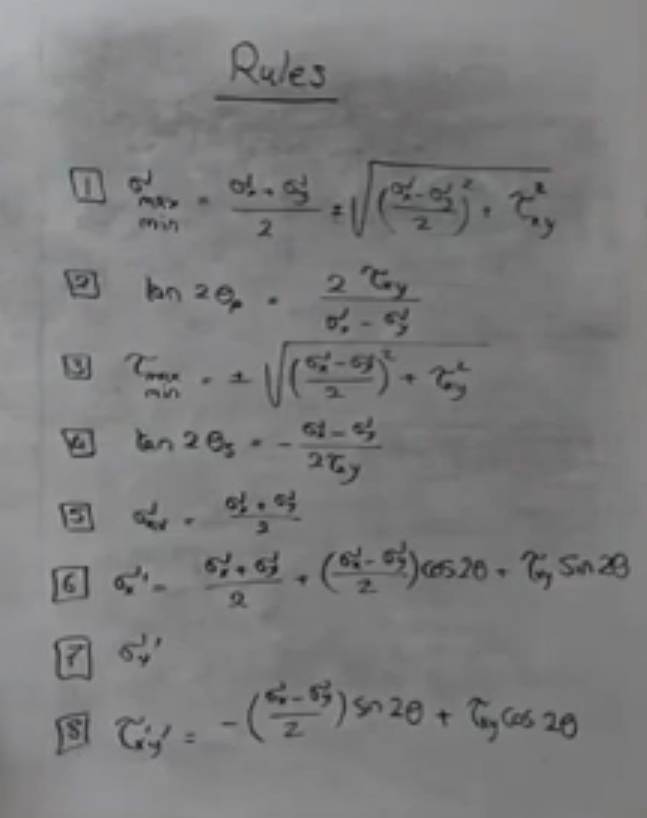 Rules
[1] σ max min = (σx + σy)/2 ± √(((σx - σy)/2)² + τxy²)
[2] tan 2θp = 2τxy/(σx - σy)
[3] τ max min = ± √(((σx - σy)/2)² + τxy²)
[4] tan 2θs = - (σx - σy)/(2τxy)
[5] σav = (σx + σy)/2
[6] σx' = (σx + σy)/2 + ((σx - σy)/2) cos2θ + τxy sin2θ
[7] σy'
[8] τx'y' = -((σx - σy)/2) sin2θ + τxy cos2θ